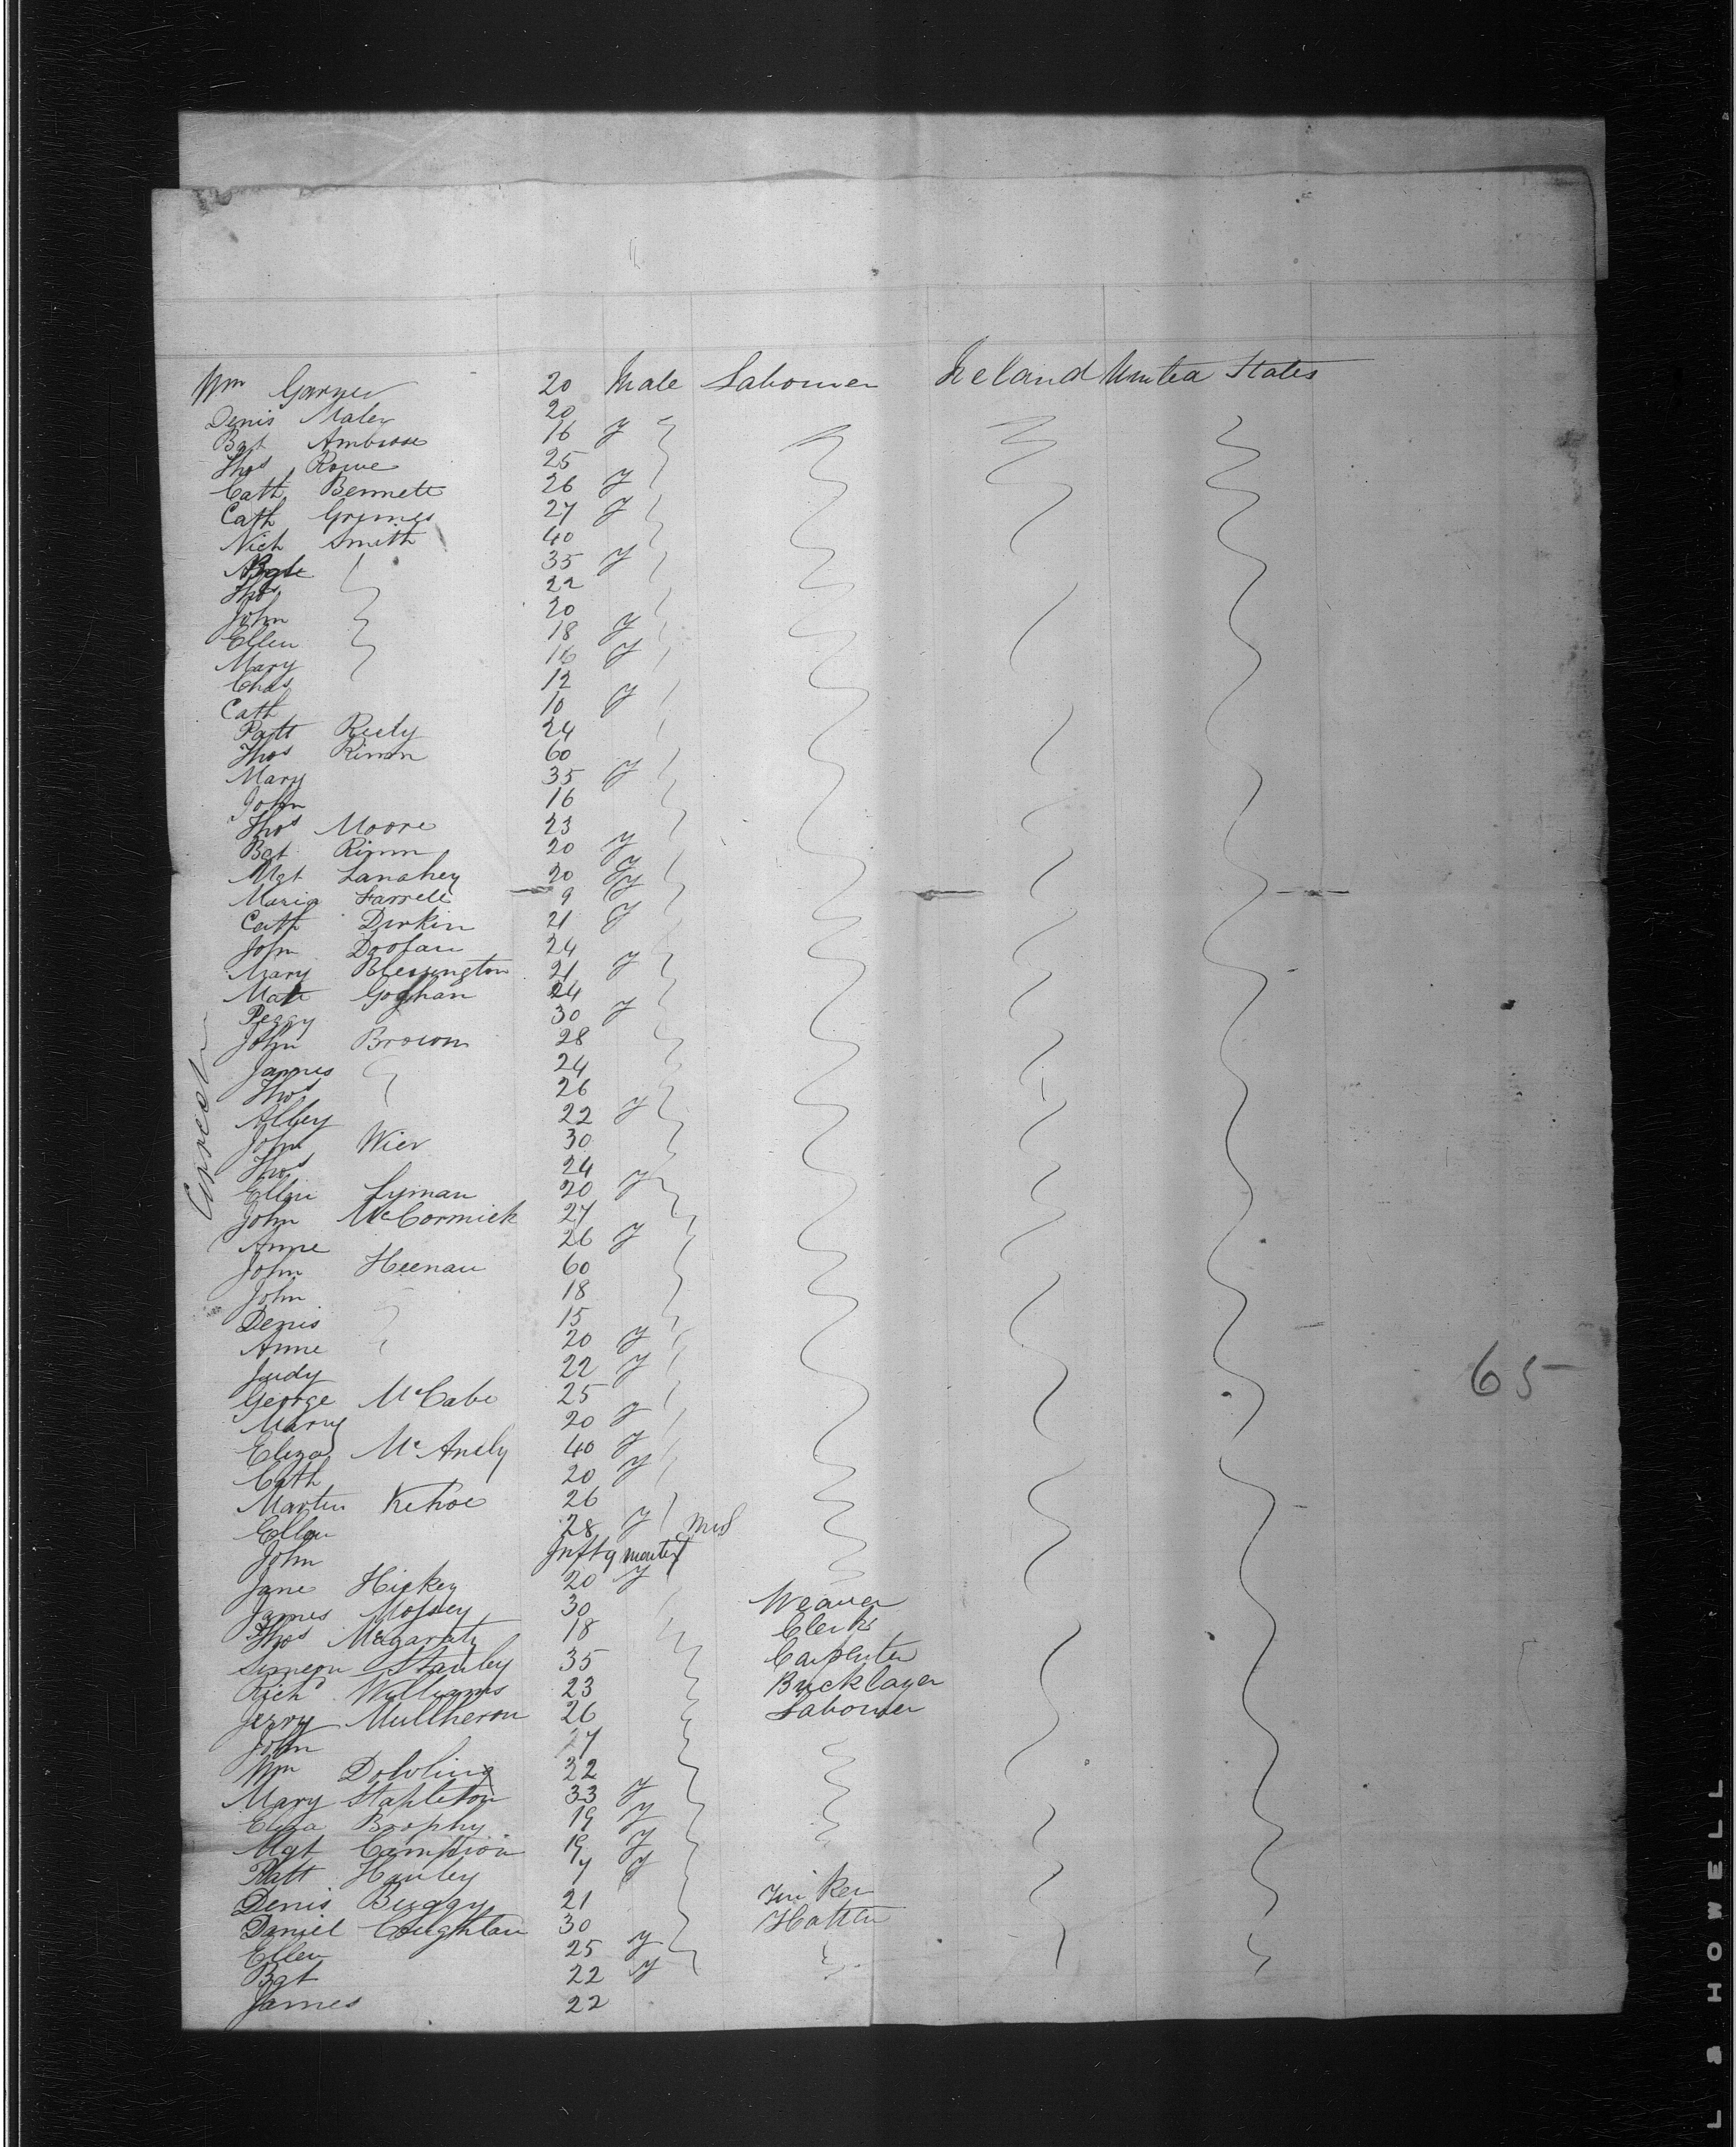 Wm Garner 20 Male Labourer Ireland United States
Denis Maley 20
Bgt Ambrose 16 f
Thos Rowe 25
Cath Bennett 26 f
Cath Grimes 27 f
Nich Smith 40
35 f
Thos 22
John 20
Ellen 18 f
Mary 16 f
Chas 12
Cath 10 f
Patt Reely 24
Thos Rimon 60
Mary 35 f
John 16
Thos Moore 23
Bgt Rimn 20 f
Mgt Lanahey 20 f
Maria Farrell 9 f
Cath Durkin 21 f
John Doolan 24
Mary Blessington 21 f
Matt Goghan 24
Peggy 30 f
John Brown 28
James 24
Thos 26
Alley 22 f
John Wier 30
Thos 24
Ellen Lyman 20 f
John McCormick 27
Anne 26 f
John Heenan 60
John 18
Denis 15
Anne 20 f
Judy 22 f
George McCabe 25
Mary 20 f
Eliza McAnely 40 f
Cath 20 f
Martin Kehoe 26
Ellen 28 f
John Inft 9 months
Jane Hickey 20 f
James Mossey 30 Weaver
Thos Magaraty 18 Clerk
Simeon Stanley 35 Carpenter
Richd Williams 23 Bricklayer
Jerry Mullheron 26 Labourer
John 27
Wm Dowling 32
Mary Stapleton 33 f
Eliza Brophy 19 f
Mgt Campion 19 f
Patt Hanley 7 f
Denis Buggy 21 Tin Ker
Daniel Coughlan 30 Hatter
Ellen 25 f
Bgt 22 f
James 22
65
L & HOWELL